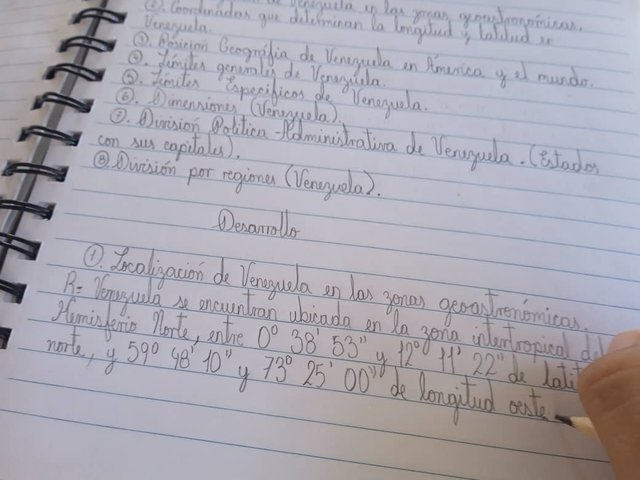 de Venezuela en las zonas geoastronómicas.
②. Coordenadas que determinan la longitud y latitud en
Venezuela.
③. Posición Geográfia de Venezuela en América y el mundo.
④. Límites generales de Venezuela.
⑤. Límites Específicos de Venezuela.
⑥. Dimensiones (Venezuela).
⑦. División Política-Administrativa de Venezuela. (Estados
con sus capitales).
⑧. División por regiones (Venezuela).
Desarrollo
①. Localización de Venezuela en las zonas geoastronómicas.
R= Venezuela se encuentran ubicada en la zona intertropical del
Hemisferio Norte, entre 0° 38' 53" y 12° 11' 22" de latit
norte, y 59° 48' 10" y 73° 25' 00" de longitud oeste